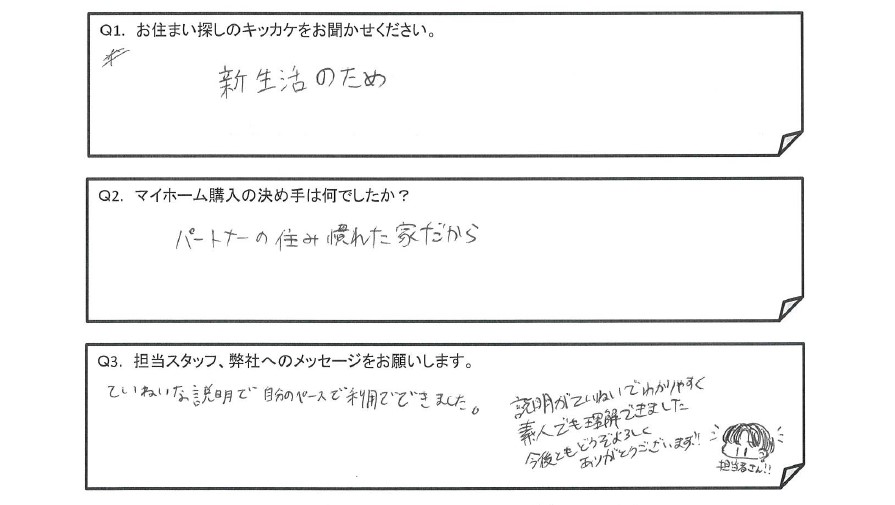 Q1. お住まい探しのキッカケをお聞かせください。
新生活のため
Q2. マイホーム購入の決め手は何でしたか？
パートナーの住み慣れた家だから
Q3. 担当スタッフ、弊社へのメッセージをお願いします。
ていねいな説明で自分のペースで利用でできました。
説明がていねいでわかりやすく
素人でも理解できました
今後ともどうぞよろしく
ありがとうございます!!
担当さん!!